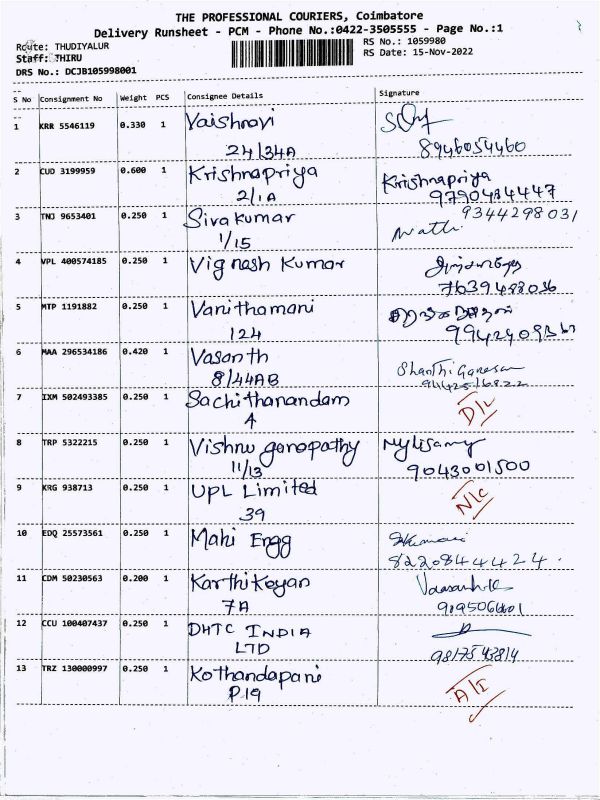 THE PROFESSIONAL COURIERS, Coimbatore
Delivery Runsheet - PCM - Phone No.:0422-3505555 - Page No.:1
Route: THUDIYALUR
RS No.: 1059980
Staff: THIRU
RS Date: 15-Nov-2022
DRS No.: DCJB105998001
S No Consignment No Weight PCS Consignee Details Signature
1 KRR 5546119 0.330 1 Vaishnavi
24/34A 8946054460
2 CUD 3199959 0.600 1 Krishnapriya Krishnapriya
2/1A 9790484447
3 TNJ 9653401 0.250 1 Sivakumar 9344298031
1/15
4 VPL 400574185 0.250 1 Vignesh Kumar
7639488036
5 MTP 1191882 0.250 1 Vanithamani
124
6 MAA 296534186 0.420 1 Vasanth Shanthi Ganesan
8/44AB
7 IXM 502493385 0.250 1 Sachithanandam D/L
4
8 TRP 5322215 0.250 1 Vishnu ganapathy Mylisamy
11/13 9043001500
9 KRG 938713 0.250 1 UPL Limited N/C
39
10 EDQ 25573561 0.250 1 Mahi Engg
8220844424.
11 CDM 50230563 0.200 1 Karthikeyan
7A
12 CCU 100407437 0.250 1 DHTC INDIA
LTD
13 TRZ 130000997 0.250 1 Kothandapani A/I
P.19